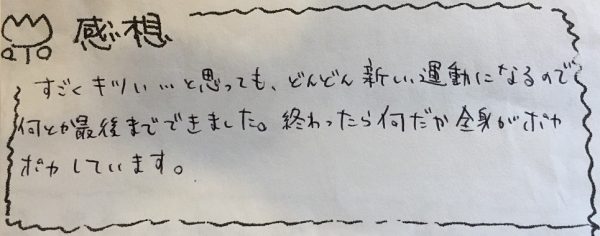 感想
すごくキツい…と思っても、どんどん新しい運動になるので
何とか最後までできました。終わったら何だか全身がポカ
ポカしています。